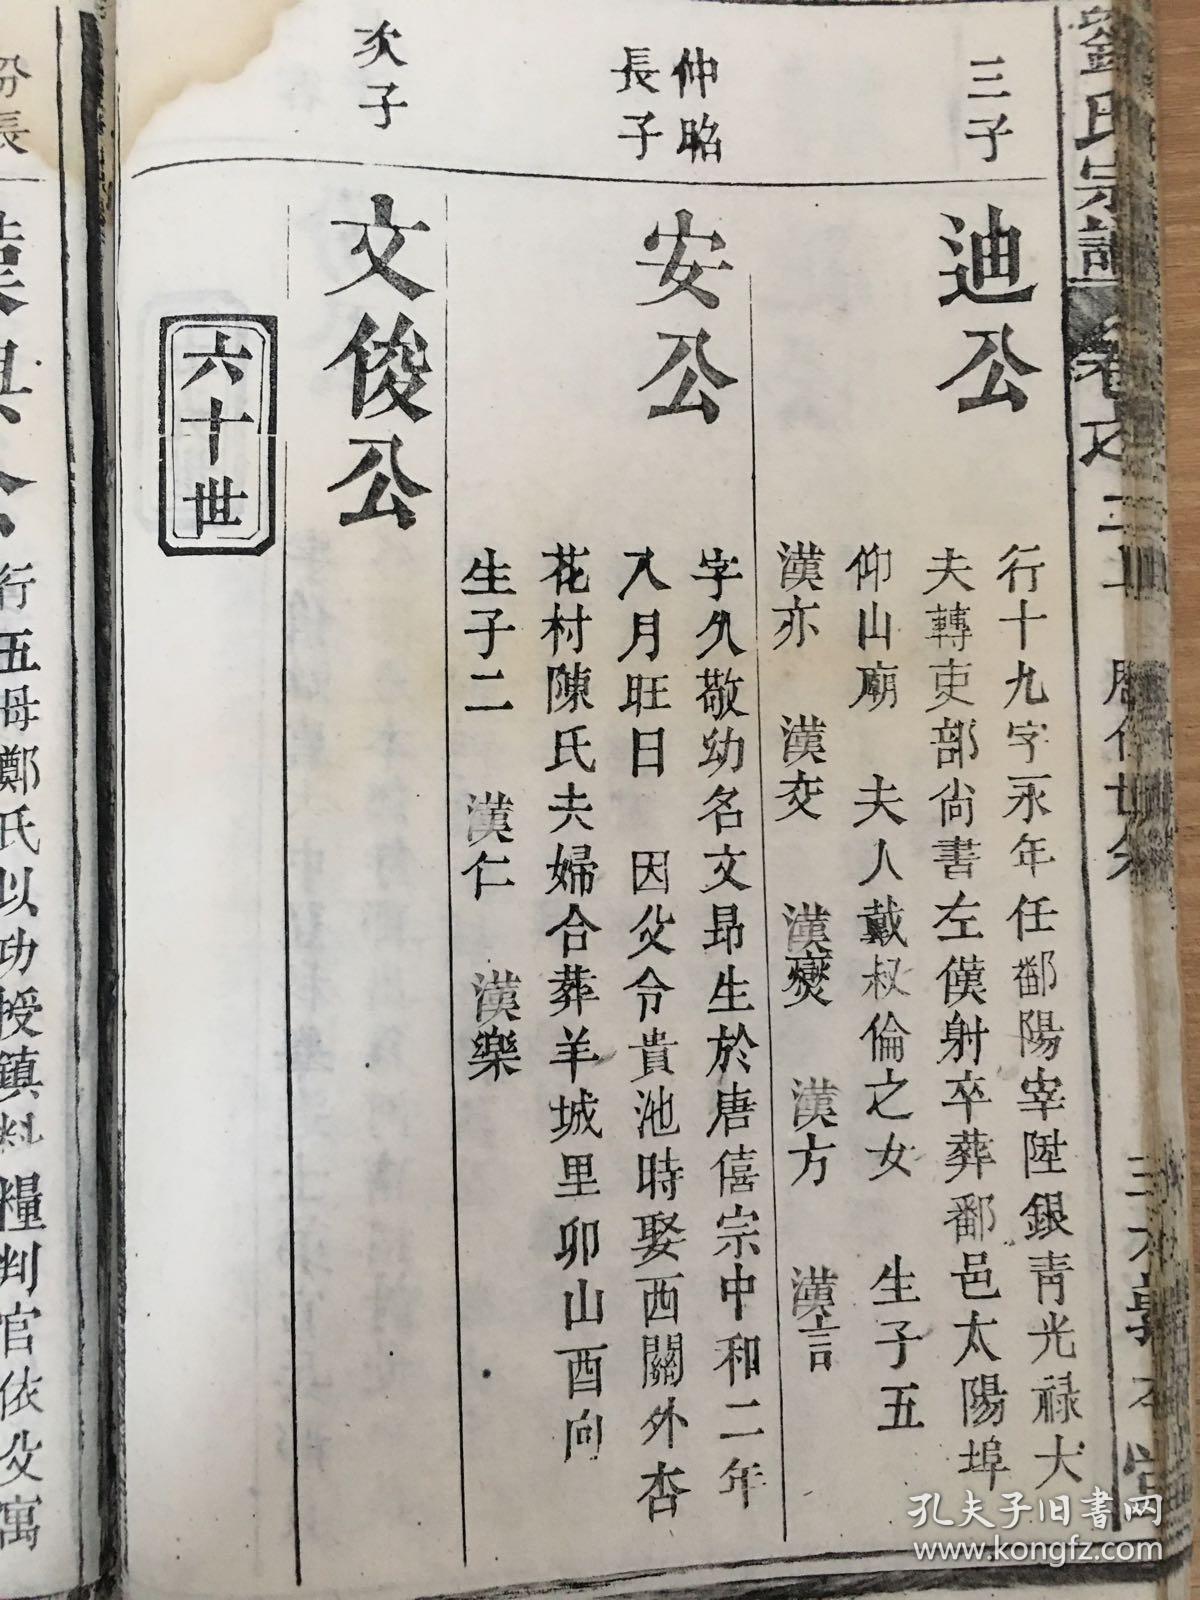 劉氏宗譜
卷之
三子
迪公
行十九字永年任鄱陽宰陞銀青光禄大
夫轉吏部尙書左僕射卒葬鄱邑太陽埠
仰山廟 夫人戴叔倫之女 生子五
漢亦 漢交 漢燮 漢方 漢言
仲昭
長子
安公
字久敬幼名文昻生於唐僖宗中和二年
八月旺日 因父令貴池時娶西關外杏
花村陳氏夫婦合葬羊城里卯山酉向
生子二 漢仁 漢樂
次子
文俊公
六十世
公 行五母鄭氏以功授鎮料糧判官依父寓
孔夫子旧书网
www.kongfz.com